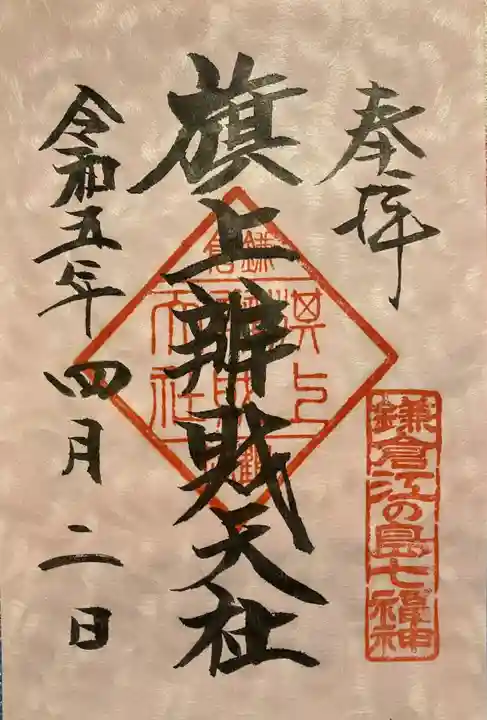 奉拝
鎌倉江の島七福神
旗上辨財天社
令和五年四月二日